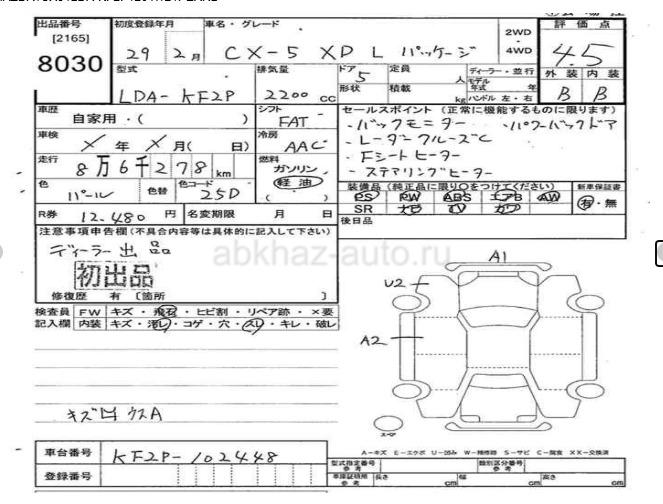 出品番号 初度登録年月 車名・グレード 評価点
[2165] 2WD
8030 29 2月 CX-5 XD L パッケージ 4WD 4.5
型式 排気量 ドア 5 定員 人 ディーラー・並行 外装 内装
LDA-KF2P 2200cc 形状 積載 kg ハンドル 左・右 B B
車歴 自家用・( ) シフト FAT セールスポイント(正常に機能するものに限ります)
車検 ×年×月( 日) 冷房 AAC ・バックモニター ・パワーバックドア
走行 8万6千278km 燃料 ・レーダークルーズC
ガソリン ・Fシートヒーター
軽油 ・ステアリングヒーター
色 パール 色替 色コード 25D 装備品(純正品に限り○をつけてください) 新車保証書
PS PW ABS エアB AW 有・無
R券 12,480円 名変期限 月 日 SR ナビ TV カワ
注意事項申告欄(不具合内容等は具体的に記入して下さい) 後日品
ディーラー出品
初出品
abkhaz-auto.ru
修復歴 有 〔箇所 〕
検査員 FW キズ・飛石・ヒビ割・リペア跡・×要
記入欄 内装 キズ・汚レ・コゲ・穴・スレ・キレ・破レ
A1
U2
A2
A-キズ E-エクボ U-凹み W-補修跡 S-サビ C-腐食 XX-交換済
車台番号 KF2P-102448
登録番号
型式指定番号 参考 類別区分番号 参考
長さ cm 幅 cm 高さ cm